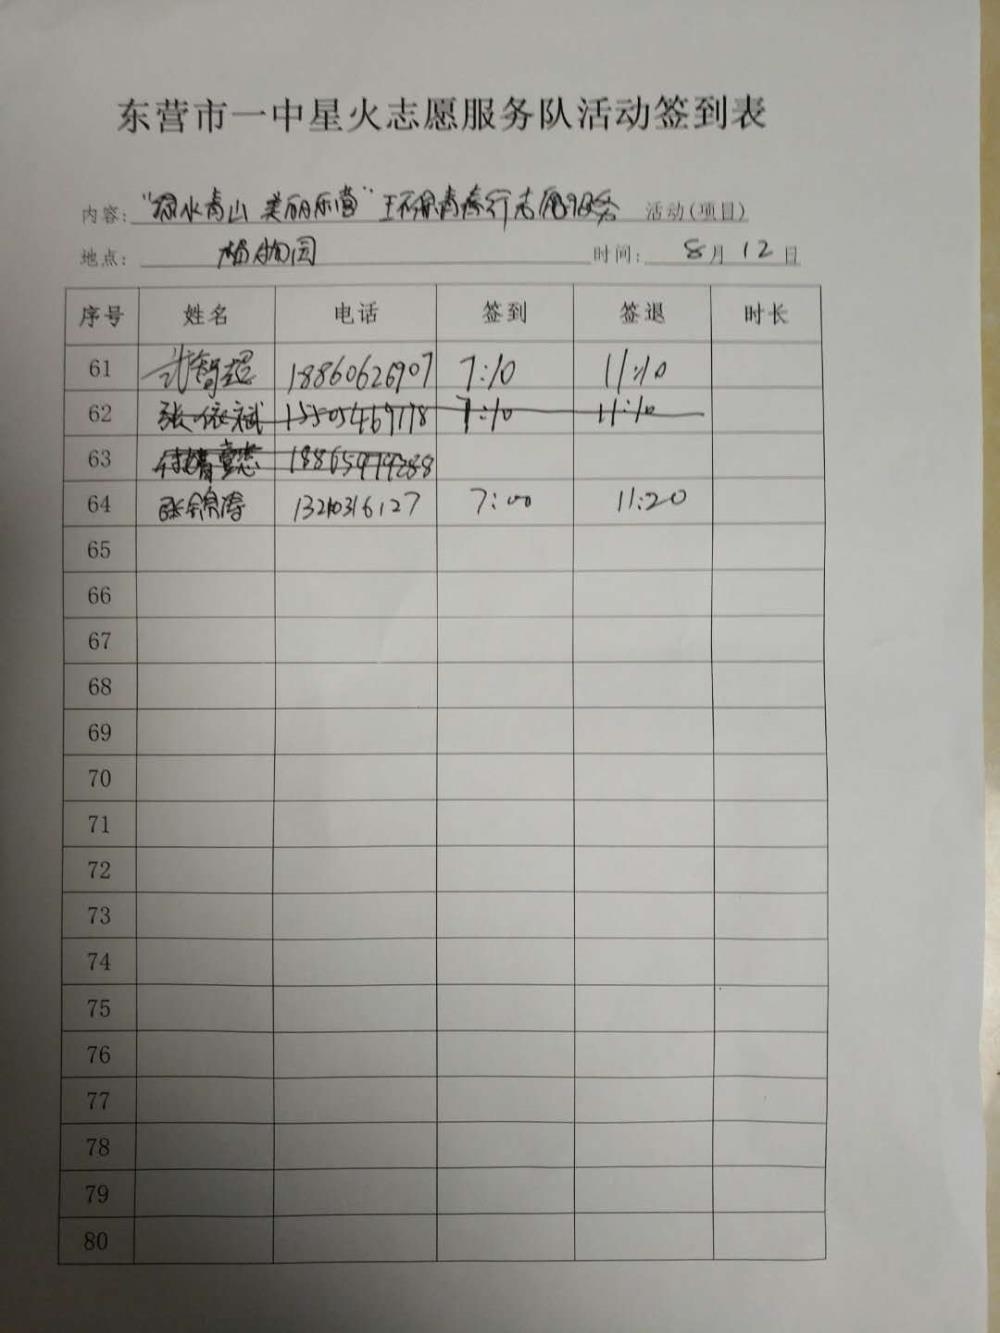 东营市一中星火志愿服务队活动签到表
内容: "绿水青山 美丽东营" 环保青春行志愿服务 活动(项目)
地点: 植物园 时间: 8月12日
序号 姓名 电话 签到 签退 时长
61 武智超 18860626907 7:10 11:10
62 张依斌 15505469778 7:10 11:10
63 18865979288
64 张锦涛 13210316127 7:00 11:20
65
66
67
68
69
70
71
72
73
74
75
76
77
78
79
80